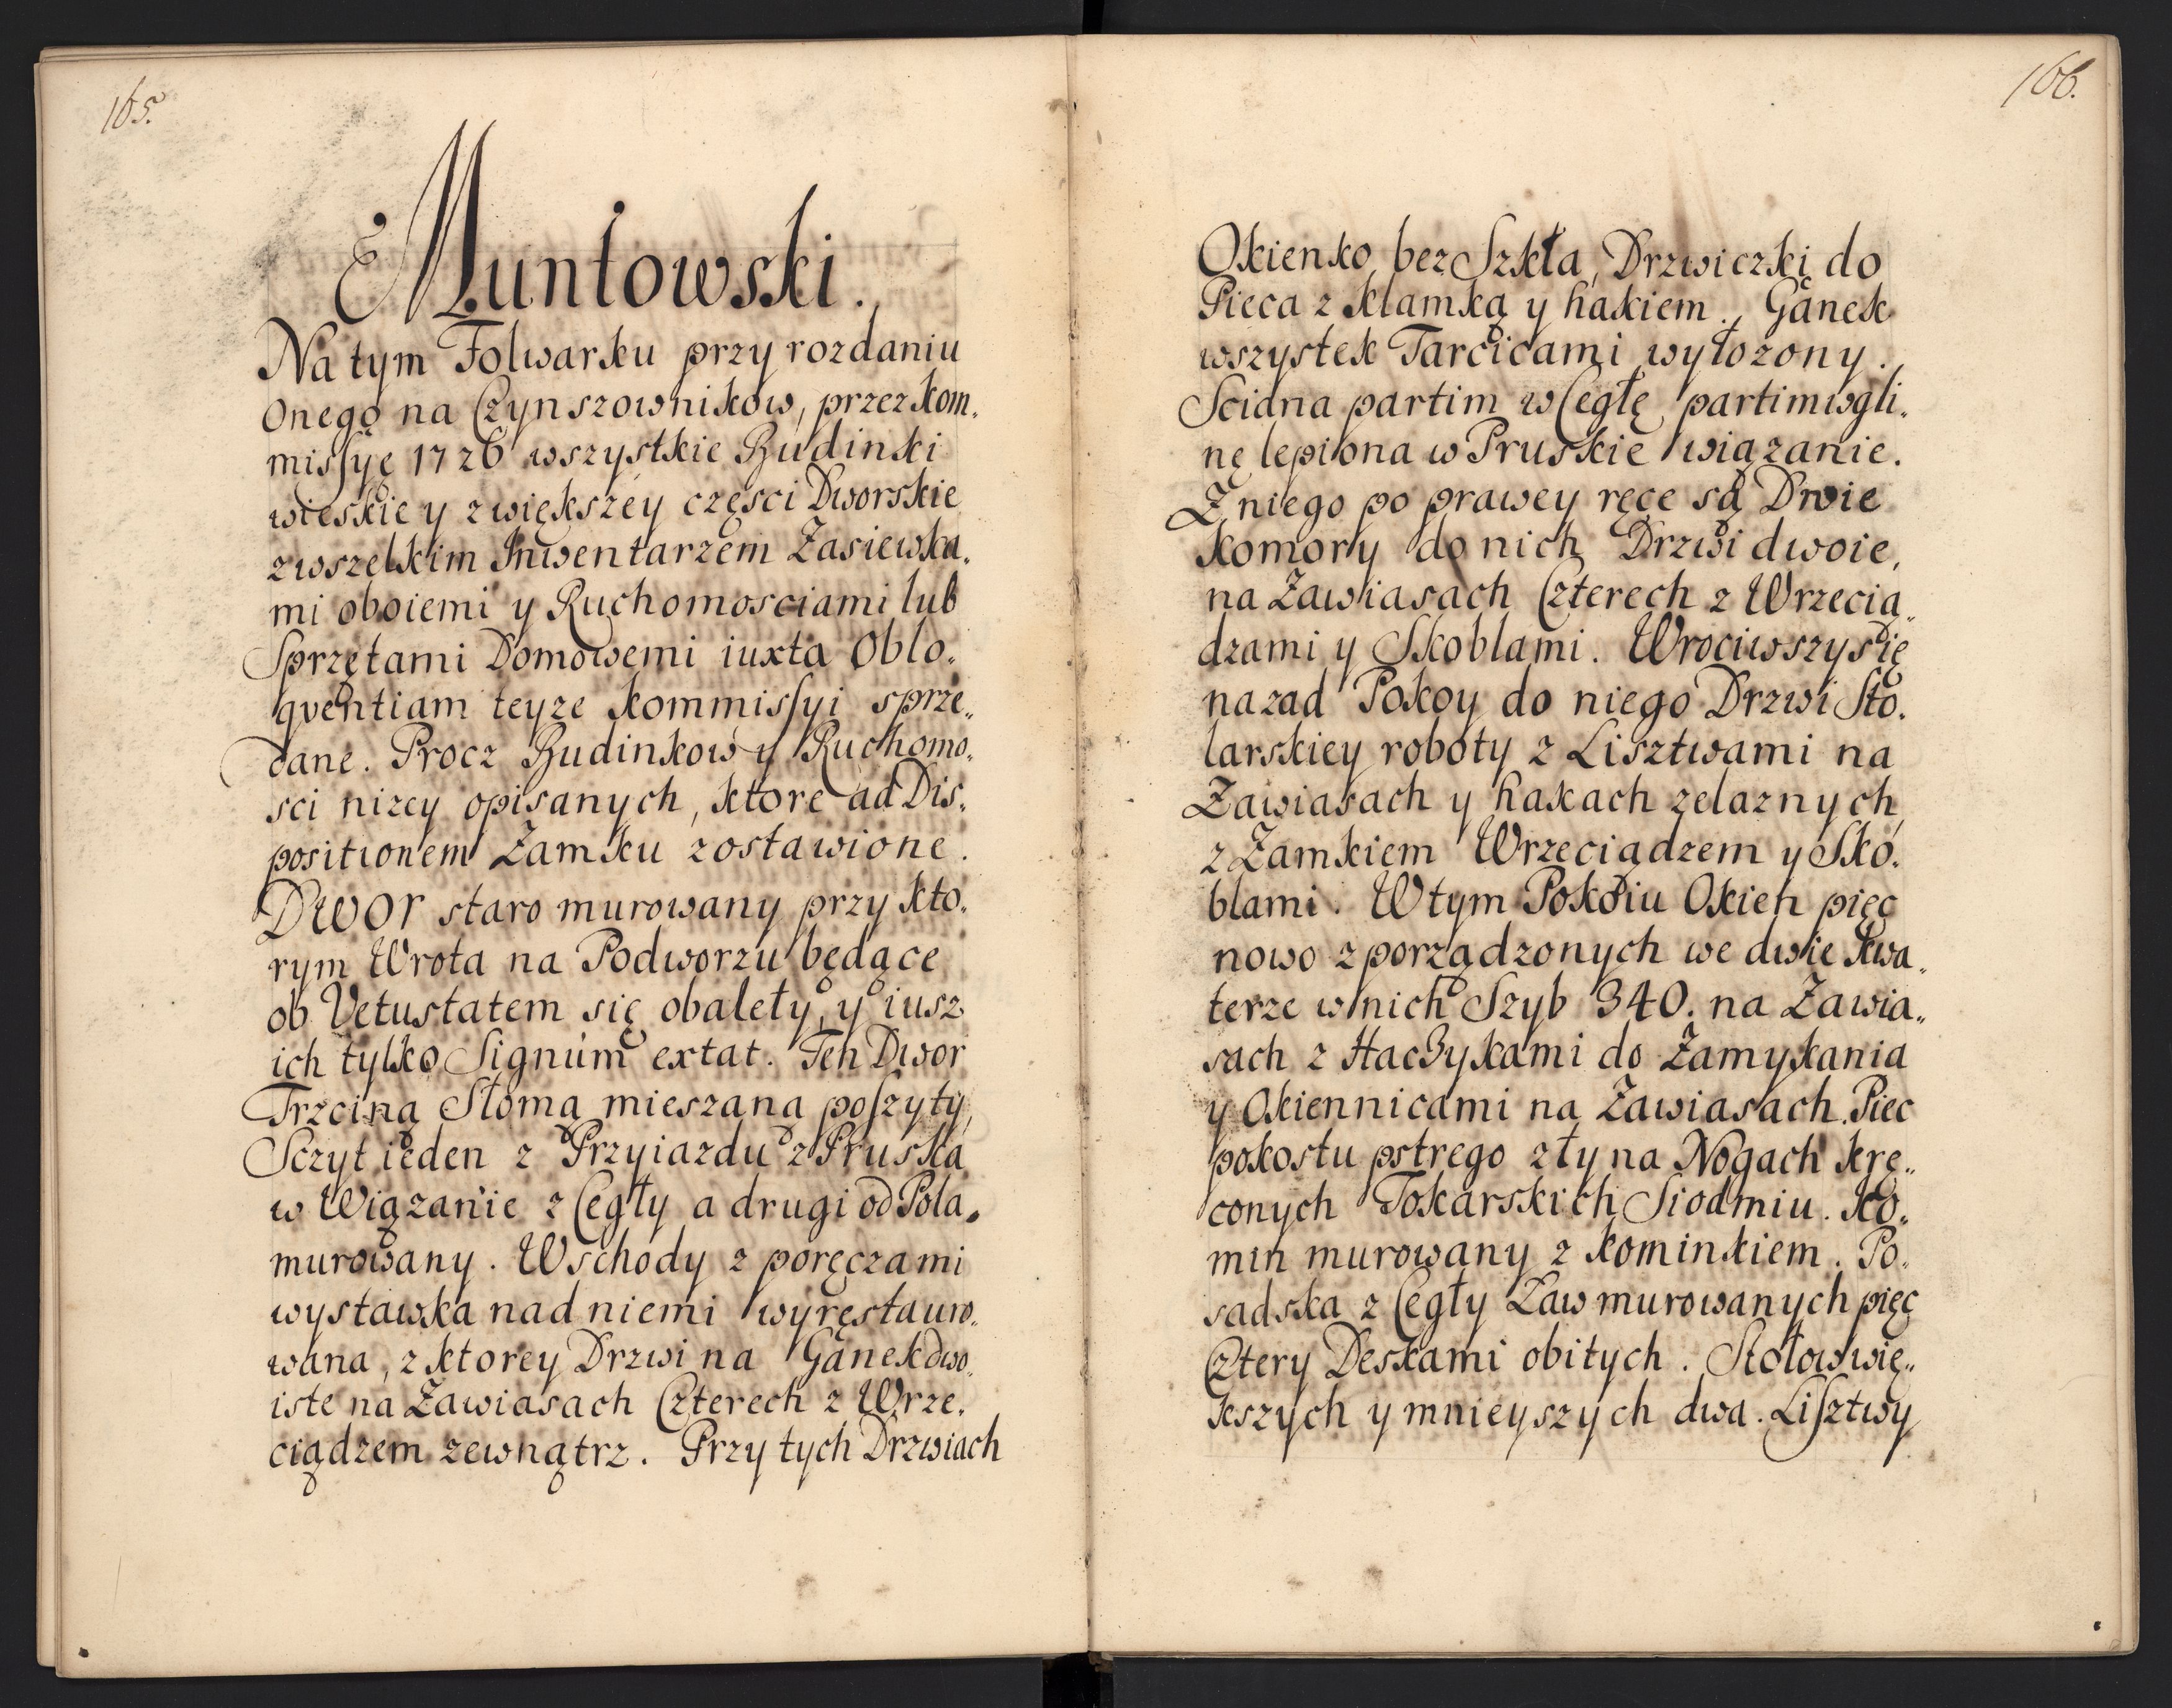 165.
Muntowski.
Na tym Folwarku przy rozdaniu
Onego na Czynszownikow, przez kom„
misſyę 1726 wszystkie Budinki
wieskie y z większey częsci Dworskie
z wszelkim Inwentarzem Zasiewka„
mi oboiemi y Ruchomosciami lub
Sprzętami Domowemi iuxta Oblo„
qventiam teyze Kommisſyi sprze„
dane. Procz Budinkow y Ruchomo„
sci nizey opisanych, ktore ad Dis„
positionem Zamku zostawione.
Dwor staro murowany przy kto„
rym Wrota na Podworzu będące
ob Vetustatem się obalety, y iusz
ich tylko Signum extat. Ten Dwor
Trzciną Słomą mieszaną poſzyty,
Sczyt ieden z Przyiazdu z Pruska
w Wiązanie z Cegły a drugi od Pola
murowany. Wschody z poręczami
wystawka nad niemi wyręstauro„
wana, z ktorey Drzwi na Ganek dwo„
iste na Zawiasach Czterech z Wrze„
ciądzem zewnątrz. Przy tych Drzwiach
166.
Okienko bez Szkła, Drzwiczki do
Pieca z Klamką y hakiem. Ganek
wszystek Tarcicami wyłozony.
Sciana partim w Cegłę partim w gli„
nę lepiona w Pruskie wiązanie.
Z niego po prawey ręce są Dwie
Komory do nich Drzwi dwoie,
na Zawiasach Czterech z Wrzecią„
dzami y Skoblami. Wrociwszy się
nazad Pokoy do niego Drzwi Sto„
larskiey roboty z Lisztwami na
Zawiasach y hakach zelaznych
z Zamkiem Wrzeciądzem y Sko„
blami. W tym Pokoiu Okien pięc
nowo zporządzonych we dwie kwa„
terze w nich Szyb 340. na Zawia„
sach z Haczykami do Zamykania
y Okiennicami na Zawiasach. Piec
pokostu pstrego zły na Nogach krę„
conych Tokarskich Siodmiu. Ko„
min murowany z Kominkiem. Po„
sadska z Cegły Ław murowanych pięc
Cztery Deskami obitych. Stołow wię„
kszych y mnieyszych dwa. Liſztwy